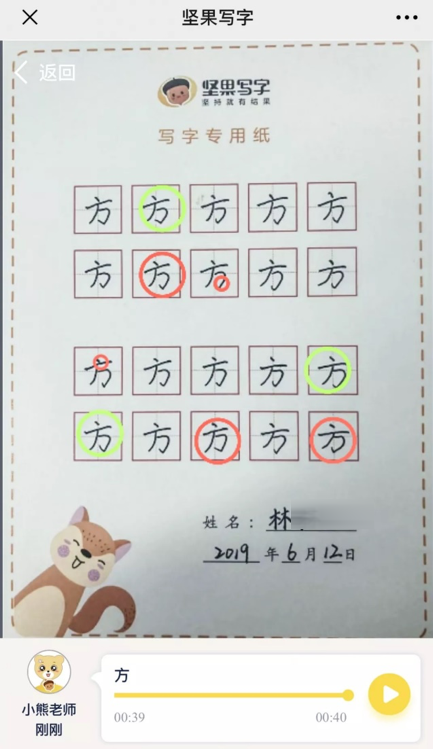 坚果写字
返回
坚果写字
坚持就有结果
写字专用纸
方 方 方 方 方
方 方 方 方 方
方 方 方 方 方
方 方 方 方 方
姓名：林
2019年6月12日
方
00:39 00:40
小熊老师
刚刚